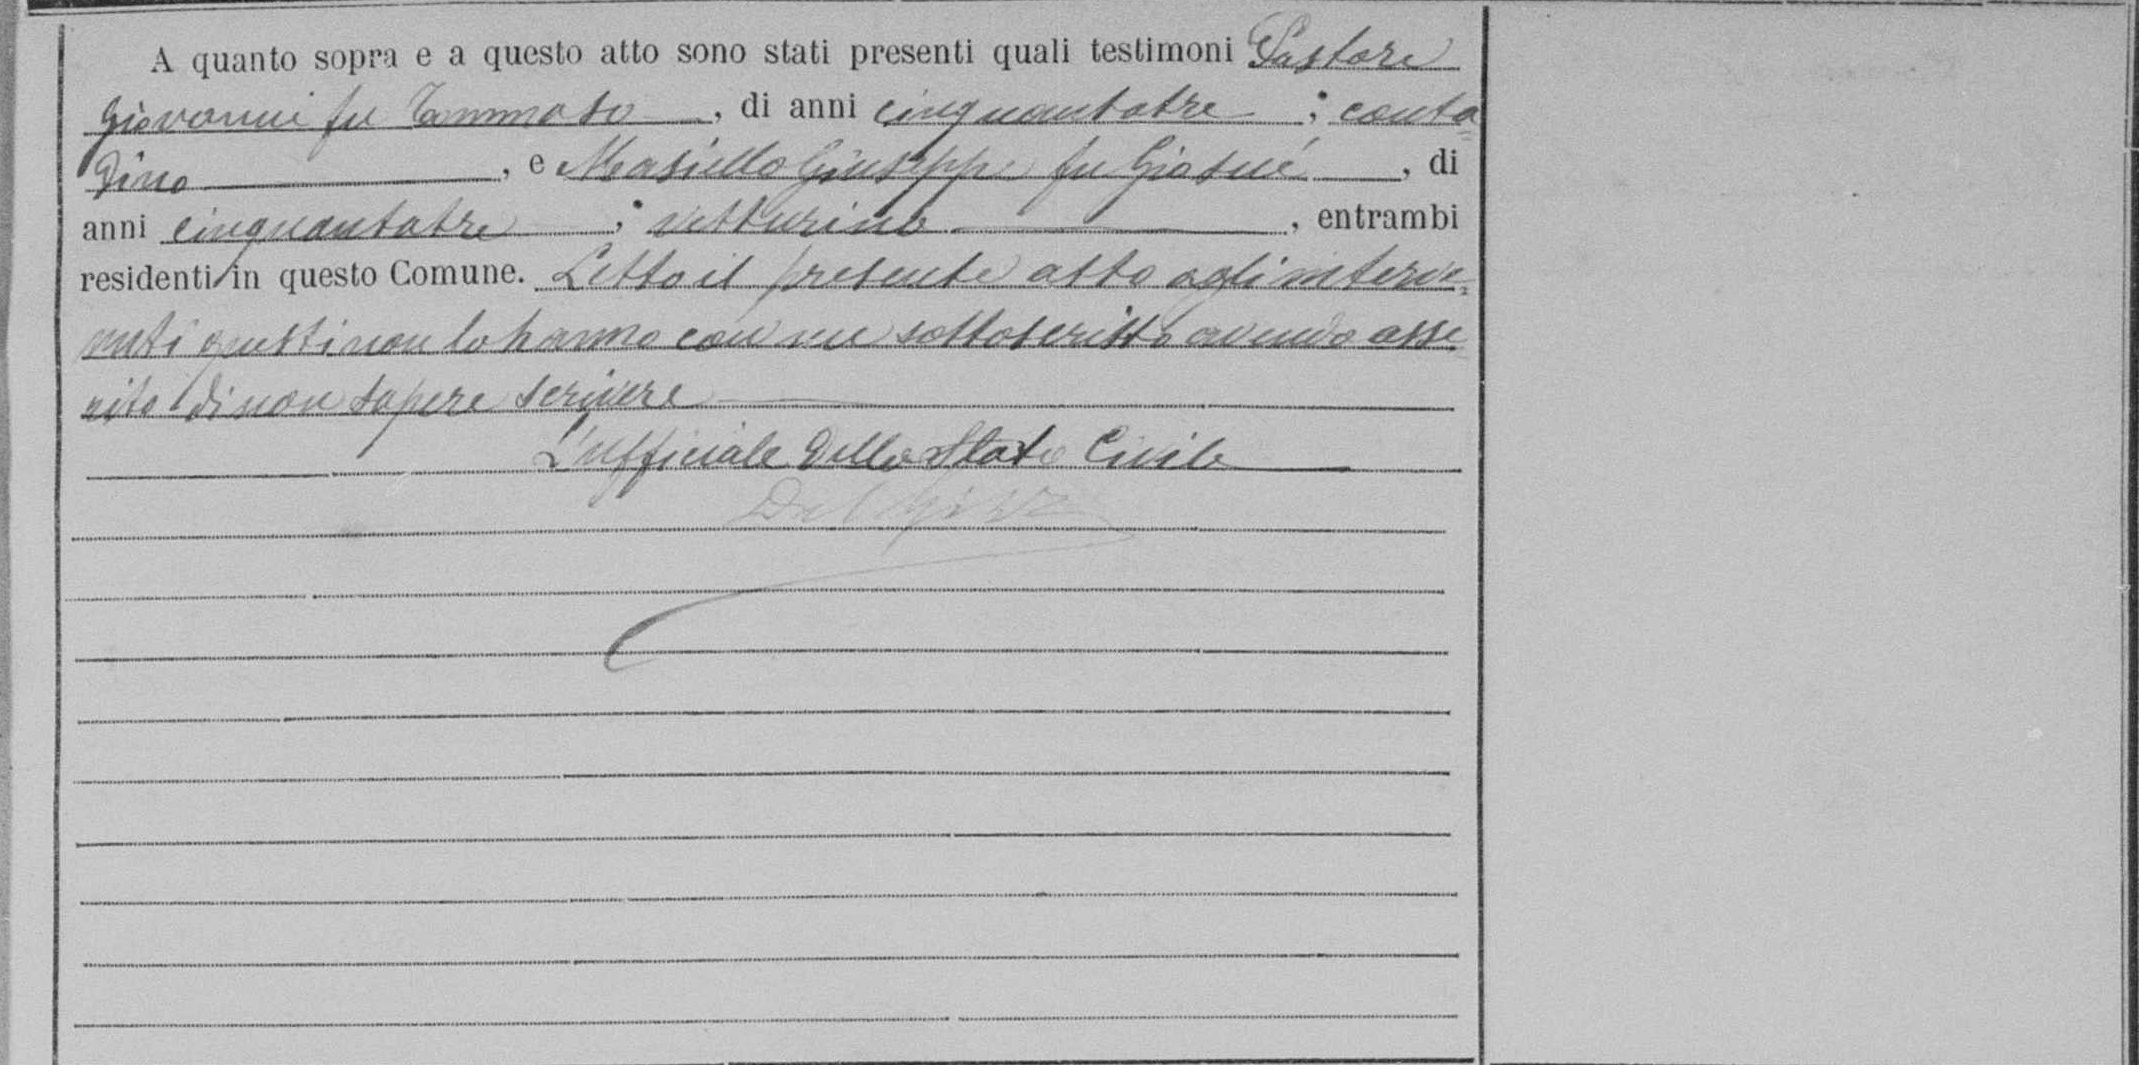 A quanto sopra e a questo atto sono stati presenti quali testimoni Pastore
Giovanni fu Tommaso, di anni cinquantatre; conta=
dino, e Masiello Giuseppe fu Giosuè, di
anni cinquantatre; vetturino, entrambi
residenti in questo Comune. Letto il presente atto agli interve=
nuti questi non lo hanno con me sottoscritto avendo asse
rito di non sapere scrivere
L'ufficiale dello Stato Civile